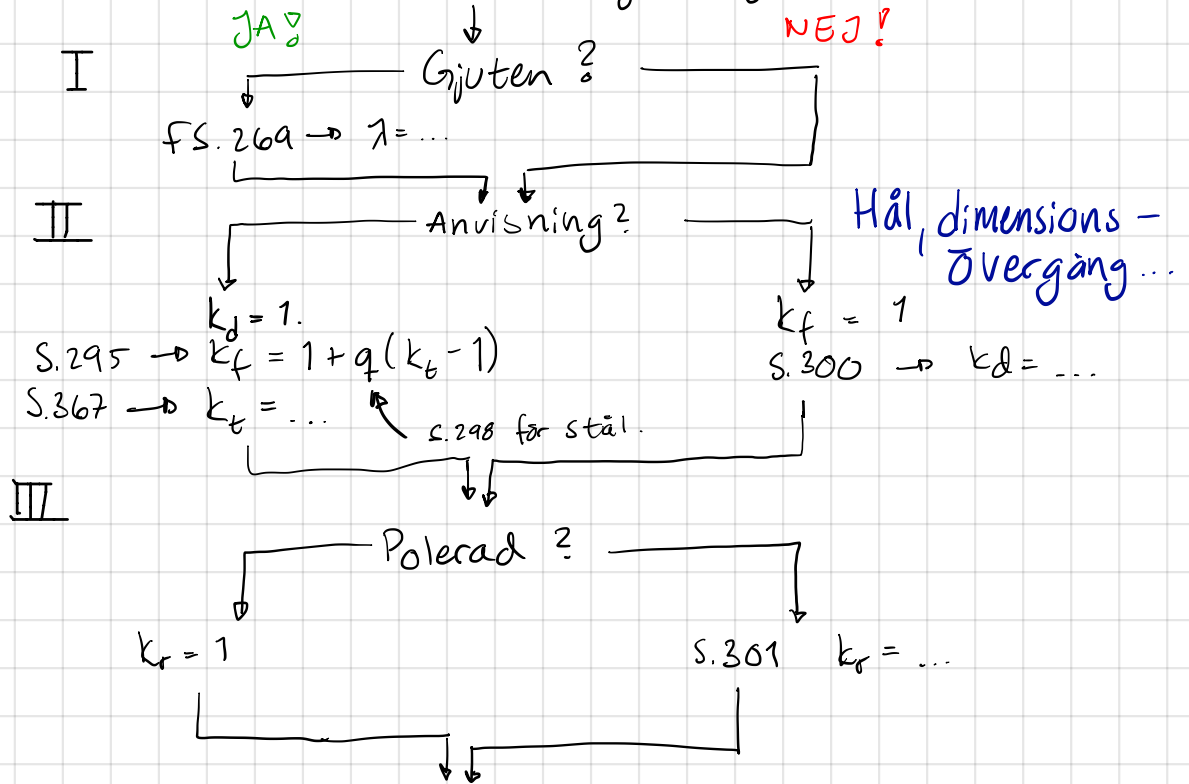 JA! NEJ!
I Gjuten ?
FS.269 → λ = ...
II Anvisning ? Hål, dimensions -
övergång ...
kd = 1. kf = 1
S.295 → kf = 1 + q (kt - 1) S.300 → kd = ...
S.367 → kt = ...
S.298 för stål.
III
Polerad ?
kr = 1 S.301 kr = ...